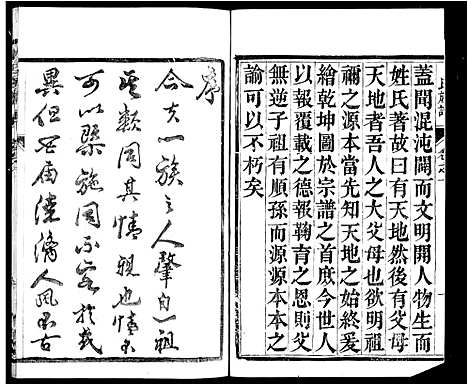 蓋聞混沌闢而文明開人物生而
姓氏著故曰有天地然後有父母
天地者吾人之大父母也欲明祖
禰之源本當先知天地之始終爰
繪乾坤圖於宗譜之首庶今世人
以報覆載之德報鞠育之恩則父
無逆子祖有順孫而源源本本之
諭可以不朽矣
序
合大一族之人肇自一祖
其類同其情親也情
可以 施同不容於或
異但 廟 人風 古